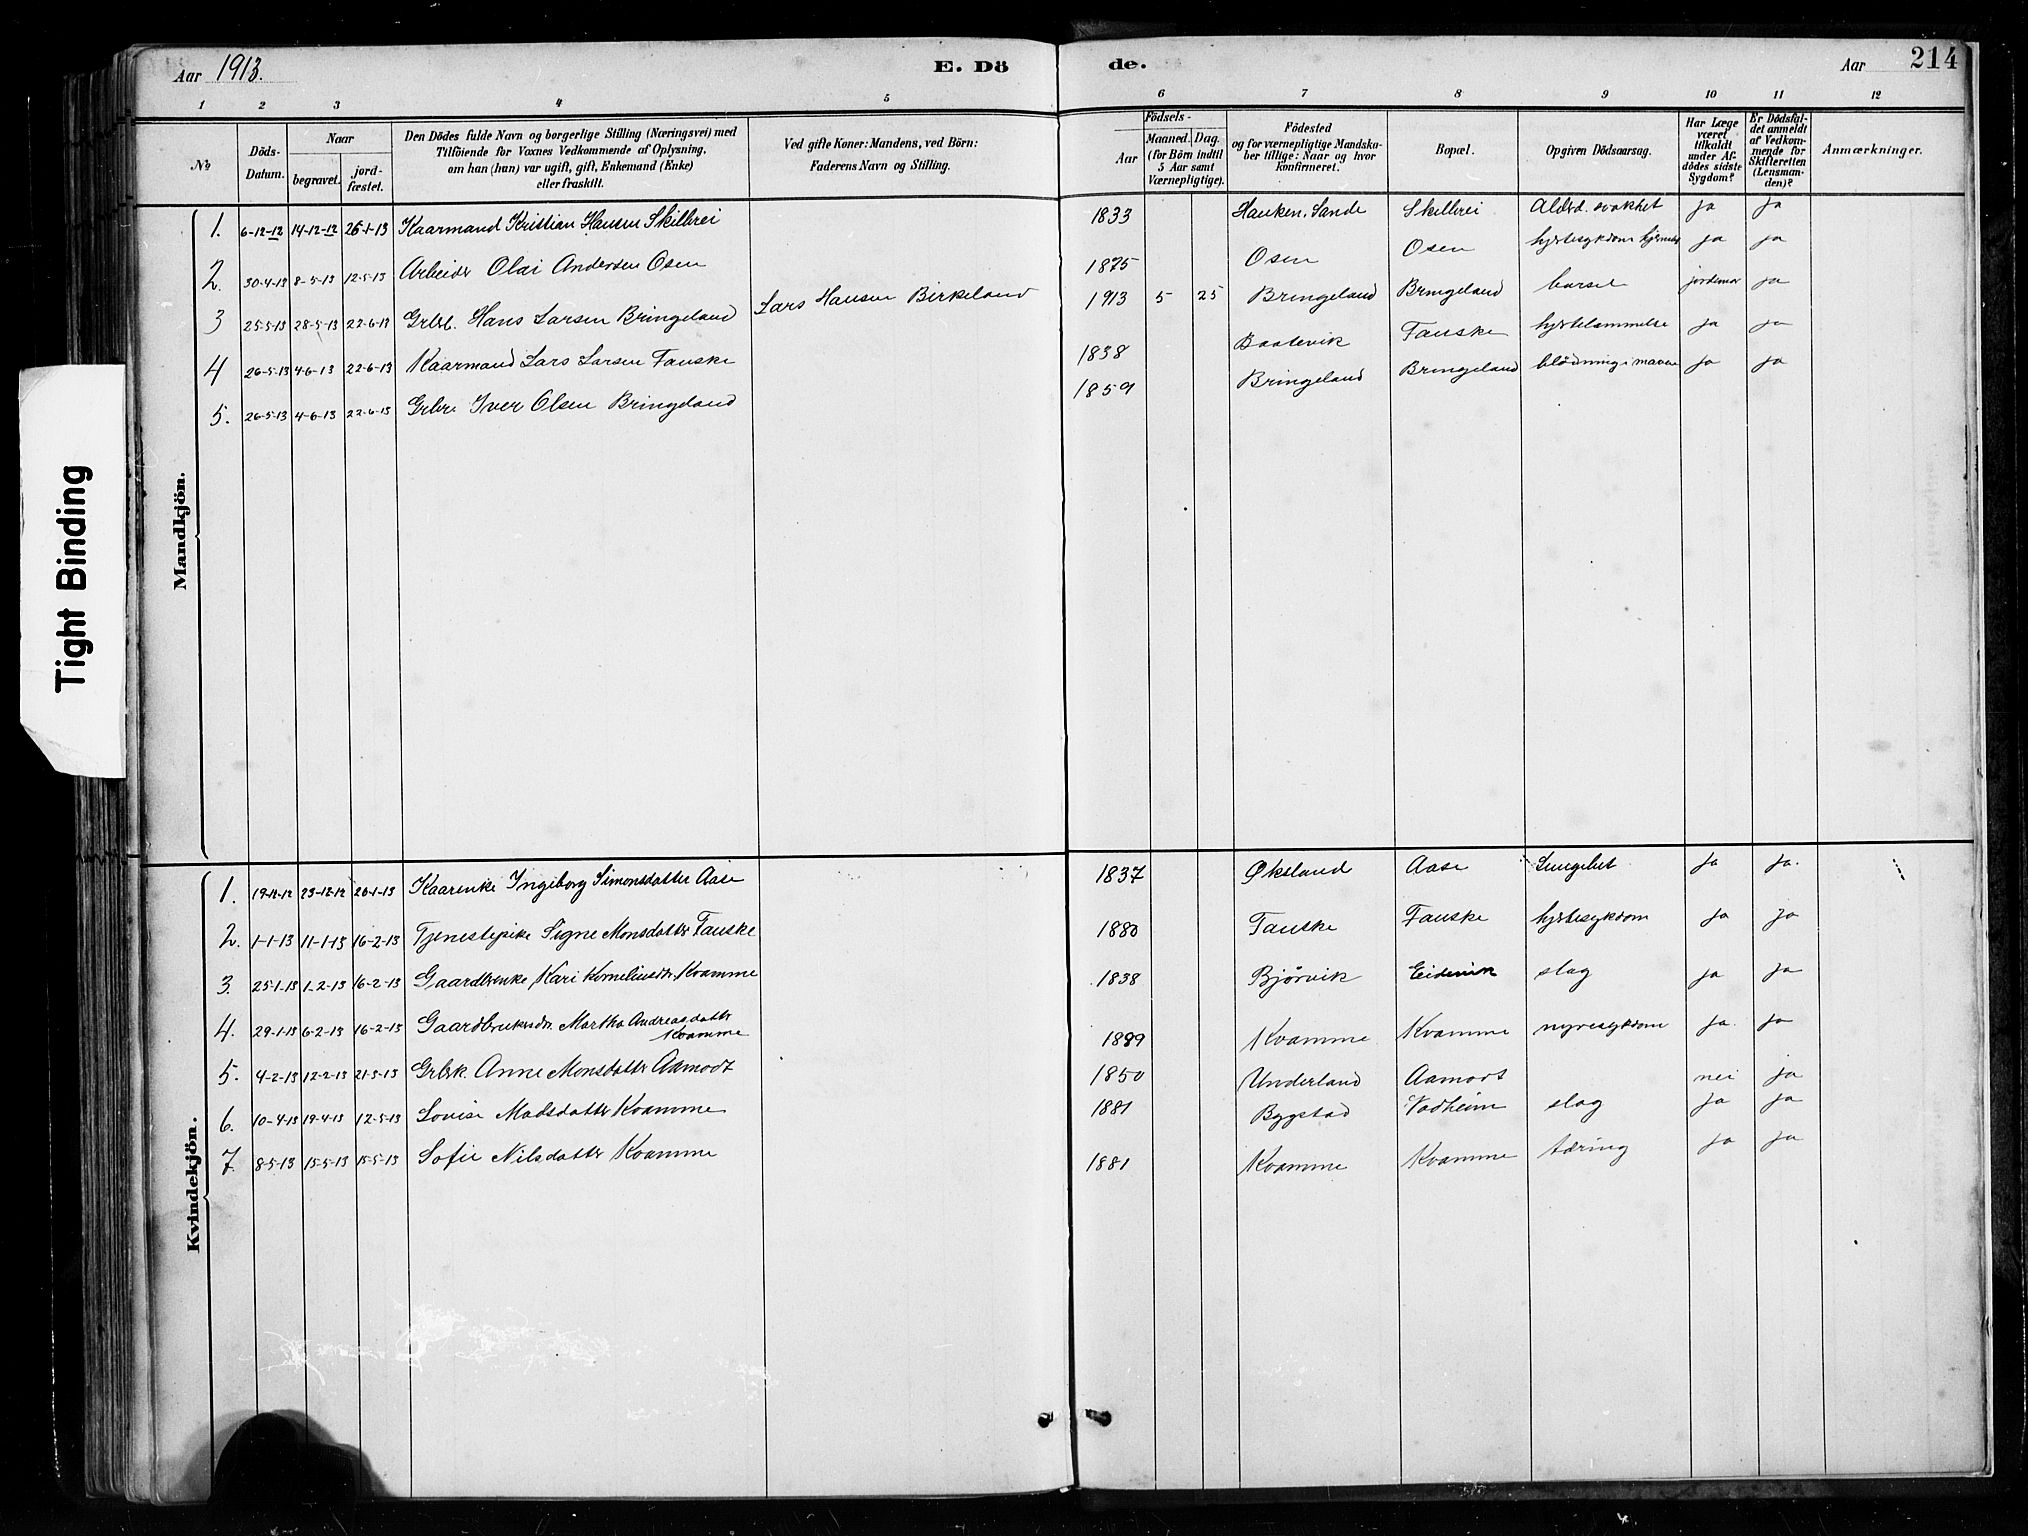 Aar 1913.
E. Dö
de.
Aar
214
1 2 3 4 5
6 7 8 9 10 11 12
No
Döds-
Datum.
Naar
begravet.
jord-
fæstet.
Den Dödes fulde Navn og borgerlige Stilling (Næringsvei) med
Tilföiende for Voxnes Vedkommende af Oplysning,
om han (hun) var ugift, gift, Enkemand (Enke)
eller fraskilt.
Ved gifte Koner: Mandens, ved Börn:
Faderens Navn og Stilling.
Födsels-
Aar
Maaned. Dag.
(for Börn indtil
5 Aar samt
Værnepligtige).
Födested
og for værnepligtige Mandska-
ber tillige: Naar og hvor
konfirmeret.
Bopæl.
Opgiven Dödsaarsag.
Har Læge
været
tilkaldt
under Af-
dödes sidste
Sygdom?
Er Dödsfal-
det anmeldt
af Vedkom-
mende for
Skifteretten
(Lensman-
den)?
Anmærkninger.
Tight Binding
Mandkjön.
1. 6-12-12 14-12-12 26-1-13 Kaarmand Kristian Hansen Skilbrei 1833 Hauken, Sande Skilbrei Alderd. svakhet ja ja
2. 30-4-13 8-5-13 12-5-13 Arbeider Olai Andersen Osen 1875 Osen Osen hjertesykdom ja ja
3 25-5-13 28-5-13 22-6-13 Grbr. Hans Larsen Bringeland Lars Hansen Birkeland 1913 5 25 Bringeland Bringeland barsel jordmor ja
4 26-5-13 4-6-13 22-6-13 Kaarmand Lars Larsen Fauske 1838 Baatevik Fauske hjertelammelse ja ja
5. 26-5-13 4-6-13 22-6-13 Grbr. Iver Olsen Bringeland 1859 Bringeland Bringeland blødning i maven ja ja
Kvindekjön.
1. 23-12-12 26-1-13 Kaarenke Ingeborg Simonsdatter Aase 1837 Økeland Aase ja ja.
2. 1-1-13 11-1-13 16-2-13 Tjenestepike Signe Monsdatter Fauske 1880 Fauske Fauske hjertesykdom ja ja
3. 25-1-13 1-2-13 16-2-13 Gaardbrenke Kari Korneliusdtr. Kvamme 1838 Bjørvik Eidevik slag ja ja
4. 29-1-13 6-2-13 16-2-13 Gaardbrukersdtr. Martha Andreasdatter
Kvamme 1889 Kvamme Kvamme nyresykdom ja ja
5. 4-2-13 12-2-13 21-3-13 Grbrk. Anne Monsdatter Aamodt 1850 Underland Aamort nei ja
6. 10-4-13 19-4-13 12-5-13 Lovise Madsdatter Kvamme 1881 Bygstad Vadheim slag ja ja
7 8-5-13 15-5-13 15-5-13 Sofie Nilsdatter Kvamme 1881 Kvamme Kvamme tæring ja ja